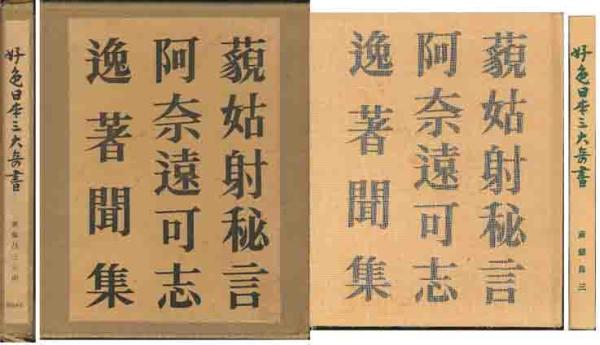 好色日本三大奇書
藐姑射秘言
阿奈遠可志
逸著聞集
藐姑射秘言
阿奈遠可志
逸著聞集
好色日本三大奇書